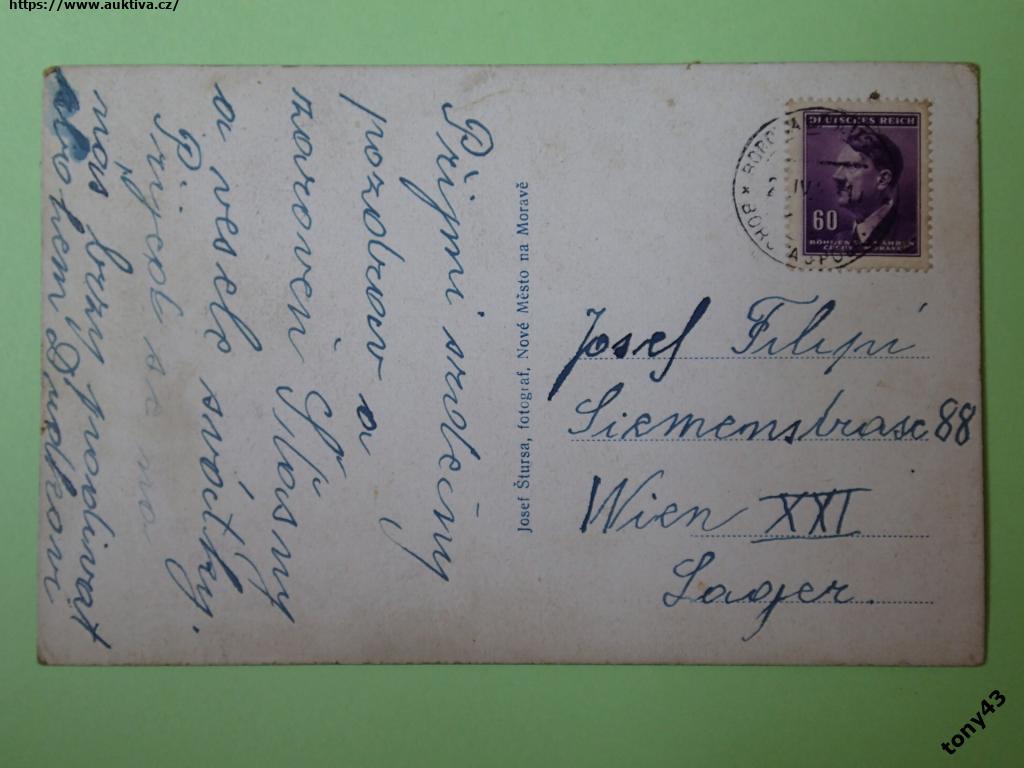 https://www.auktiva.cz/
Přijmi srdečný
pozdrav a
zároveň šťastný
a veselé svátky.
Přijeď se na
nás brzy podívat
Josef Štursa, fotograf, Nové Město na Moravě
DEUTSCHES REICH
60
BÖHMEN UND MÄHREN
ČECHY A MORAVA
Josef Filipi
Siemenstrase 88
Wien XXI
Lager.
tony43